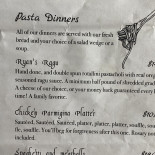 Pasta Dinners
All of our dinners are served with our fresh
bread and your choice of a salad wedge or a
soup.
Ryan's Ragu
Hand done, and double spun rotalini pasta foll with real
seasoned ragu sauce. A minimum half pound of shredded
A cheese of our choice, or your money back guaranteed every
time! A family favorite.
Chicky Parmigina Platter
Sauteed, Sauteed, Sauteed, plater, platter, plantir, souffle,
fle, souffle. You'll beg for forgiveness after this one. Rosary
not included.